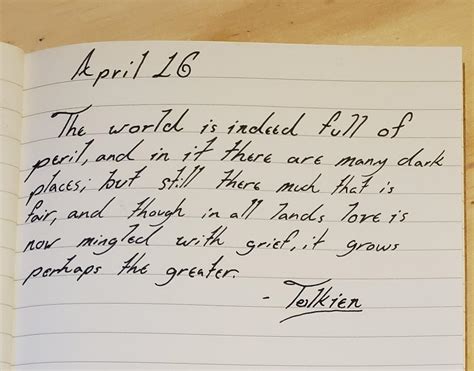 April 16
The world is indeed full of
peril, and in it there are many dark
places; but still there much that is
fair, and though in all lands love is
now mingled with grief, it grows
perhaps the greater.
- Tolkien